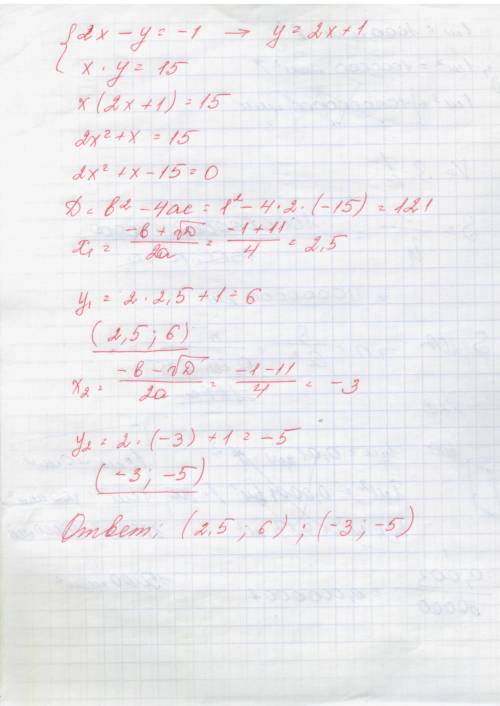 { 2x − y = −1 → y = 2x+1
x · y = 15
x(2x+1) = 15
2x² + x = 15
2x² + x − 15 = 0
D = b² − 4ac = 1² − 4·2·(−15) = 121
x₁ = (−b + √D)/2a = (−1+11)/4 = 2,5
y₁ = 2 · 2,5 + 1 = 6
(2,5 ; 6)
x₂ = (−b − √D)/2a = (−1−11)/4 = −3
y₂ = 2 · (−3) + 1 = −5
(−3; −5)
Ответ: (2,5 ; 6) ; (−3 ; −5)